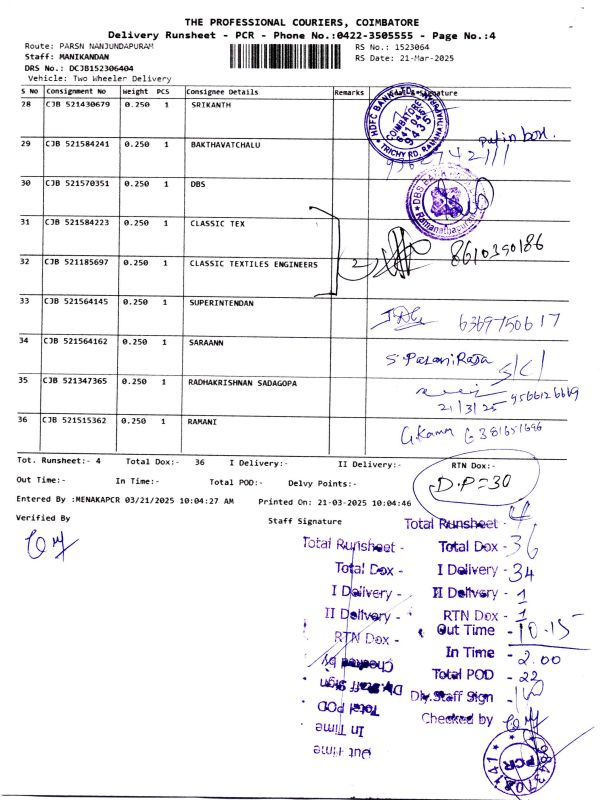 THE PROFESSIONAL COURIERS, COIMBATORE
Delivery Runsheet - PCR - Phone No.:0422-3505555 - Page No.:4
Route: PARSN NANJUNDAPURAM
RS No.: 1523064
Staff: MANIKANDAN
RS Date: 21-Mar-2025
DRS No.: DCJB152306404
Vehicle: Two Wheeler Delivery
S No Consignment No Weight PCS Consignee Details Remarks
28 CJB 521430679 0.250 1 SRIKANTH
HDFC BANK LTD. COIMBATORE TRICHY RD,
put in box.
29 CJB 521584241 0.250 1 BAKTHAVATCHALU
30 CJB 521570351 0.250 1 DBS
DBS BANK Ramanathapuram
31 CJB 521584223 0.250 1 CLASSIC TEX
8610390186
32 CJB 521185697 0.250 1 CLASSIC TEXTILES ENGINEERS 2
33 CJB 521564145 0.250 1 SUPERINTENDAN
6369750617
34 CJB 521564162 0.250 1 SARAANN
S. Palani Raja
35 CJB 521347365 0.250 1 RADHAKRISHNAN SADAGOPA
21/3/25
36 CJB 521515362 0.250 1 RAMANI
Tot. Runsheet:- 4 Total Dox:- 36 I Delivery:- II Delivery:- RTN Dox:-
Out Time:- In Time:- Total POD:- Delvy Points:-
D.P=30
Entered By :MENAKAPCR 03/21/2025 10:04:27 AM Printed On: 21-03-2025 10:04:46
Verified By
Staff Signature
Total Runsheet - 4
Total Dox - 36
I Delivery - 34
II Delivery - 1
RTN Dox - 1
Out Time - 10.15
In Time - 2.00
Total POD - 22
Dly.Staff Sign -
Checked by
Total Runsheet -
Total Dox -
I Delivery -
II Delivery -
RTN Dox -
Checked by
Dly.Staff Sign
Total POD
In Time
Out Time
PCR